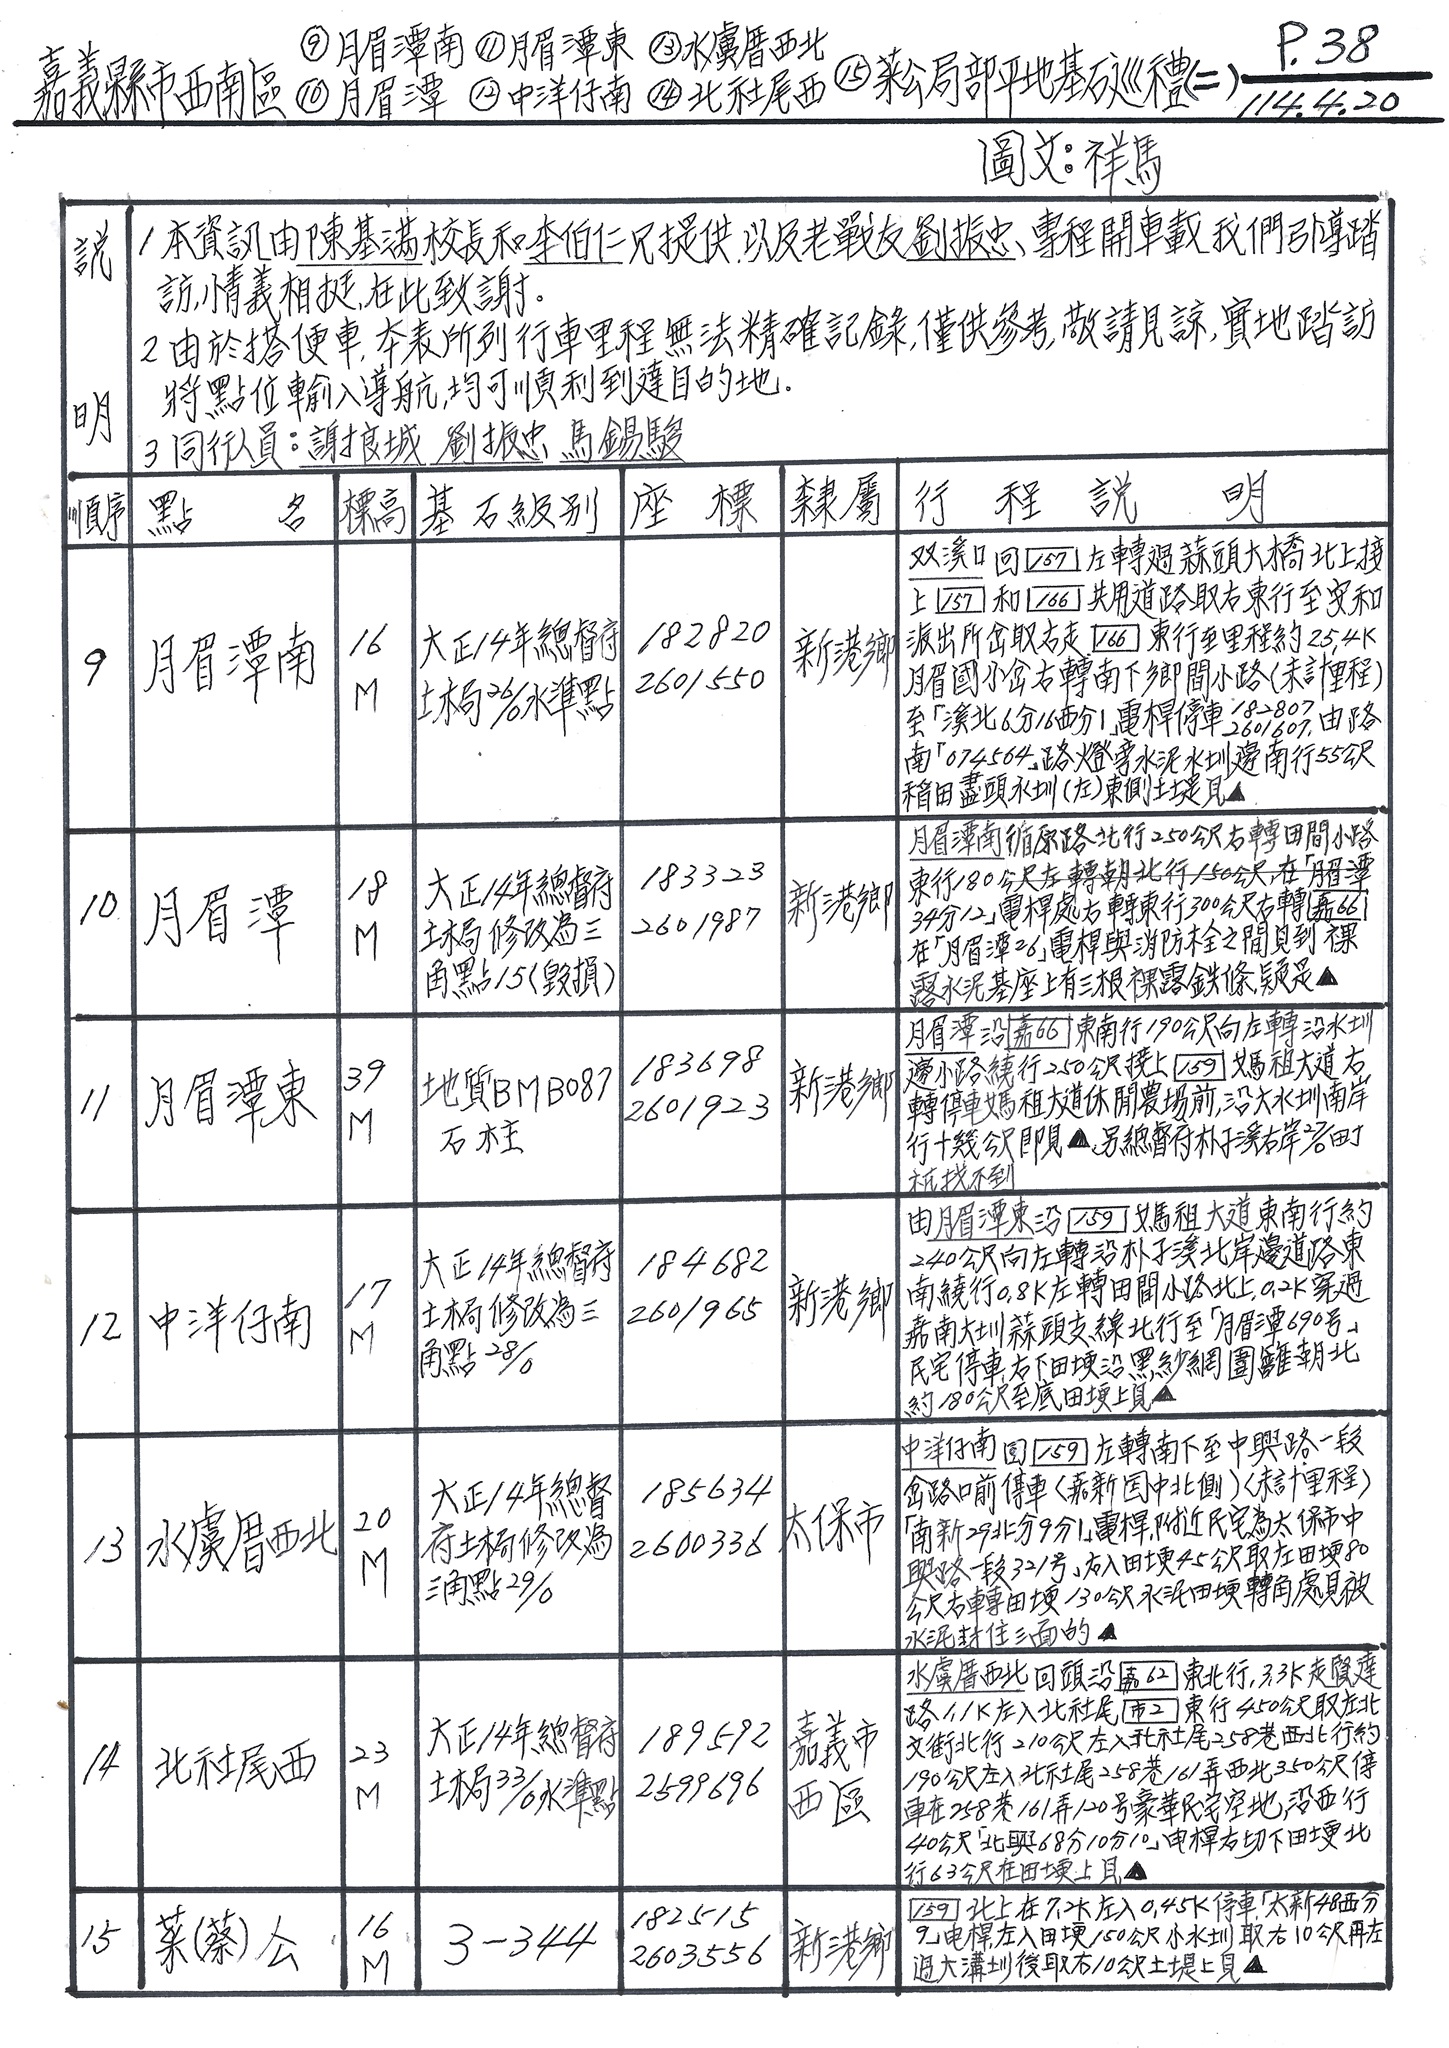 嘉義縣市西南區 ⑨月眉潭南 ⑪月眉潭東 ⑬水虞厝西北
⑩月眉潭 ⑫中洋仔南 ⑭北社尾西 ⑮菜公局部平地基石巡禮(二)
P.38
114.4.20
圖文:祥馬
說明
1 本資訊由陳基滿校長和李伯仁兄提供,以及老戰友劉振忠、專程開車載我們引導踏
訪,情義相挺,在此致謝。
2 由於搭便車,本表所列行車里程無法精確記錄,僅供參考,敬請見諒,實地踏訪
將點位輸入導航,均可順利到達目的地.
3 同行人員:謝良城 劉振忠 馬錫駿
順序 點名 標高 基石級別 座標 隸屬 行程說明
9 月眉潭南 16M
大正14年總督府
土木局26/0水準點
182820
2601550
新港鄉
双溪口回157左轉過蒜頭大橋北上接
上157和166共用道路取右東行至安和
派出所岔取右走166東行至里程約25.4K
月眉國小岔右轉南下鄉間小路(未計里程)
至「溪北6分16西分1」電桿停車182807 2601607,由路
南「074564」路燈旁水泥水圳邊南行55公尺
稻田盡頭水圳(左)東側土堤見▲
10 月眉潭 18M
大正14年總督府
土木局修改為三
角點15(毀損)
183323
2601987
新港鄉
月眉潭南循原路北行250公尺右轉田間小路
東行180公尺左轉朝北行150公尺,在「月眉潭
34分12」電桿處右轉東行300公尺右轉嘉66
在「月眉潭26」電桿與消防栓之間見到裸
露水泥基座上有三根裸露鉄條,疑是▲
11 月眉潭東 39M
地質BMB087
石柱
183698
2601923
新港鄉
月眉潭沿嘉66東南行190公尺向左轉沿水圳
邊小路繞行250公尺接上159媽祖大道右
轉停車媽祖大道休閒農場前,沿大水圳南岸
行十幾公尺即見▲,另總督府朴子溪右岸27/0田寸
祇找不到
12 中洋仔南 17M
大正14年總督府
土木局修改為三
角點28/0
184682
2601965
新港鄉
由月眉潭東沿159媽祖大道東南行約
240公尺向左轉沿朴子溪北岸邊道路東
南繞行0.8K左轉田間小路北上,0.2K穿過
嘉南大圳蒜頭支線北行至「月眉潭690号」
民宅停車,右下田埂沿黑紗網圍籬朝北
約180公尺至底田埂上見▲
13 水虞厝西北 20M
大正14年總督
府土木局修改為
三角點29/0
185634
2600336
太保市
中洋仔南回159左轉南下至中興路一段
岔路口前停車(嘉新国中北側)(未計里程)
「南新29北分9分1」電桿,附近民宅為太保市中
興路一段321号,右入田埂45公尺取左田埂80
公尺右轉田埂130公尺水泥田埂轉角處見被
水泥封住三面的▲
14 北社尾西 23M
大正14年總督府
土木局33/0水準點
189592
2599696
嘉義市
西區
水虞厝西北回頭沿嘉62東北行,3.3K走賢達
路1.1K左入北社尾市2東行450公尺取左北
文街北行210公尺左入北社尾258巷西北行約
190公尺左入北社尾258巷161弄西北350公尺停
車在258巷161弄120号豪華民宅空地,沿西行
40公尺「北興68分10分10」电桿右切下田埂北
行63公尺在田埂上見▲
15 菜(蔡)公 16M 3-344
182515
2603556
新港鄉
159北上在7.2K左入0.45K停車「太新48西分
9」电桿,左入田埂150公尺小水圳取右10公尺再左
過大溝圳後取右10公尺土堤上見▲